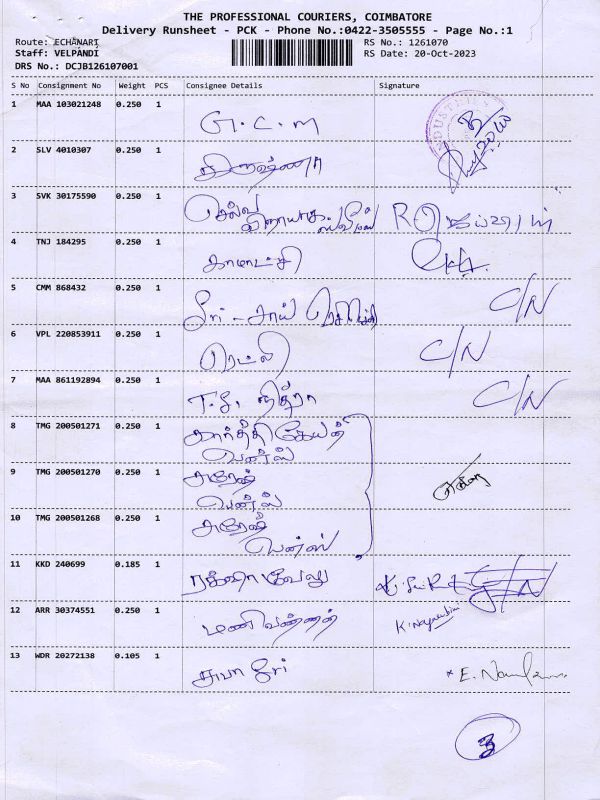 THE PROFESSIONAL COURIERS, COIMBATORE
Delivery Runsheet - PCK - Phone No.:0422-3505555 - Page No.:1
Route: ECHANARI RS No.: 1261070
Staff: VELPANDI RS Date: 20-Oct-2023
DRS No.: DCJB126107001
S No Consignment No Weight PCS Consignee Details Signature
1 MAA 103021248 0.250 1 G.C.M
2 SLV 4010307 0.250 1 கிருஷ்ணா
3 SVK 30175590 0.250 1 செல்வ
விநாயகா
4 TNJ 184295 0.250 1 காமாட்சி
5 CMM 868432 0.250 1 ஸ்ரீ - சாய் C/N
6 VPL 220853911 0.250 1 C/N
7 MAA 861192894 0.250 1 T.S. மித்ரா C/N
8 TMG 200501271 0.250 1 கார்த்திகேயன்
9 TMG 200501270 0.250 1 சுரேஷ்
10 TMG 200501268 0.250 1 சுரேஷ்
11 KKD 240699 0.185 1 ரக்ஷா வேலு
12 ARR 30374551 0.250 1 மணிவண்ணன்
13 WDR 20272138 0.105 1 சுபா ஸ்ரீ * E.
3